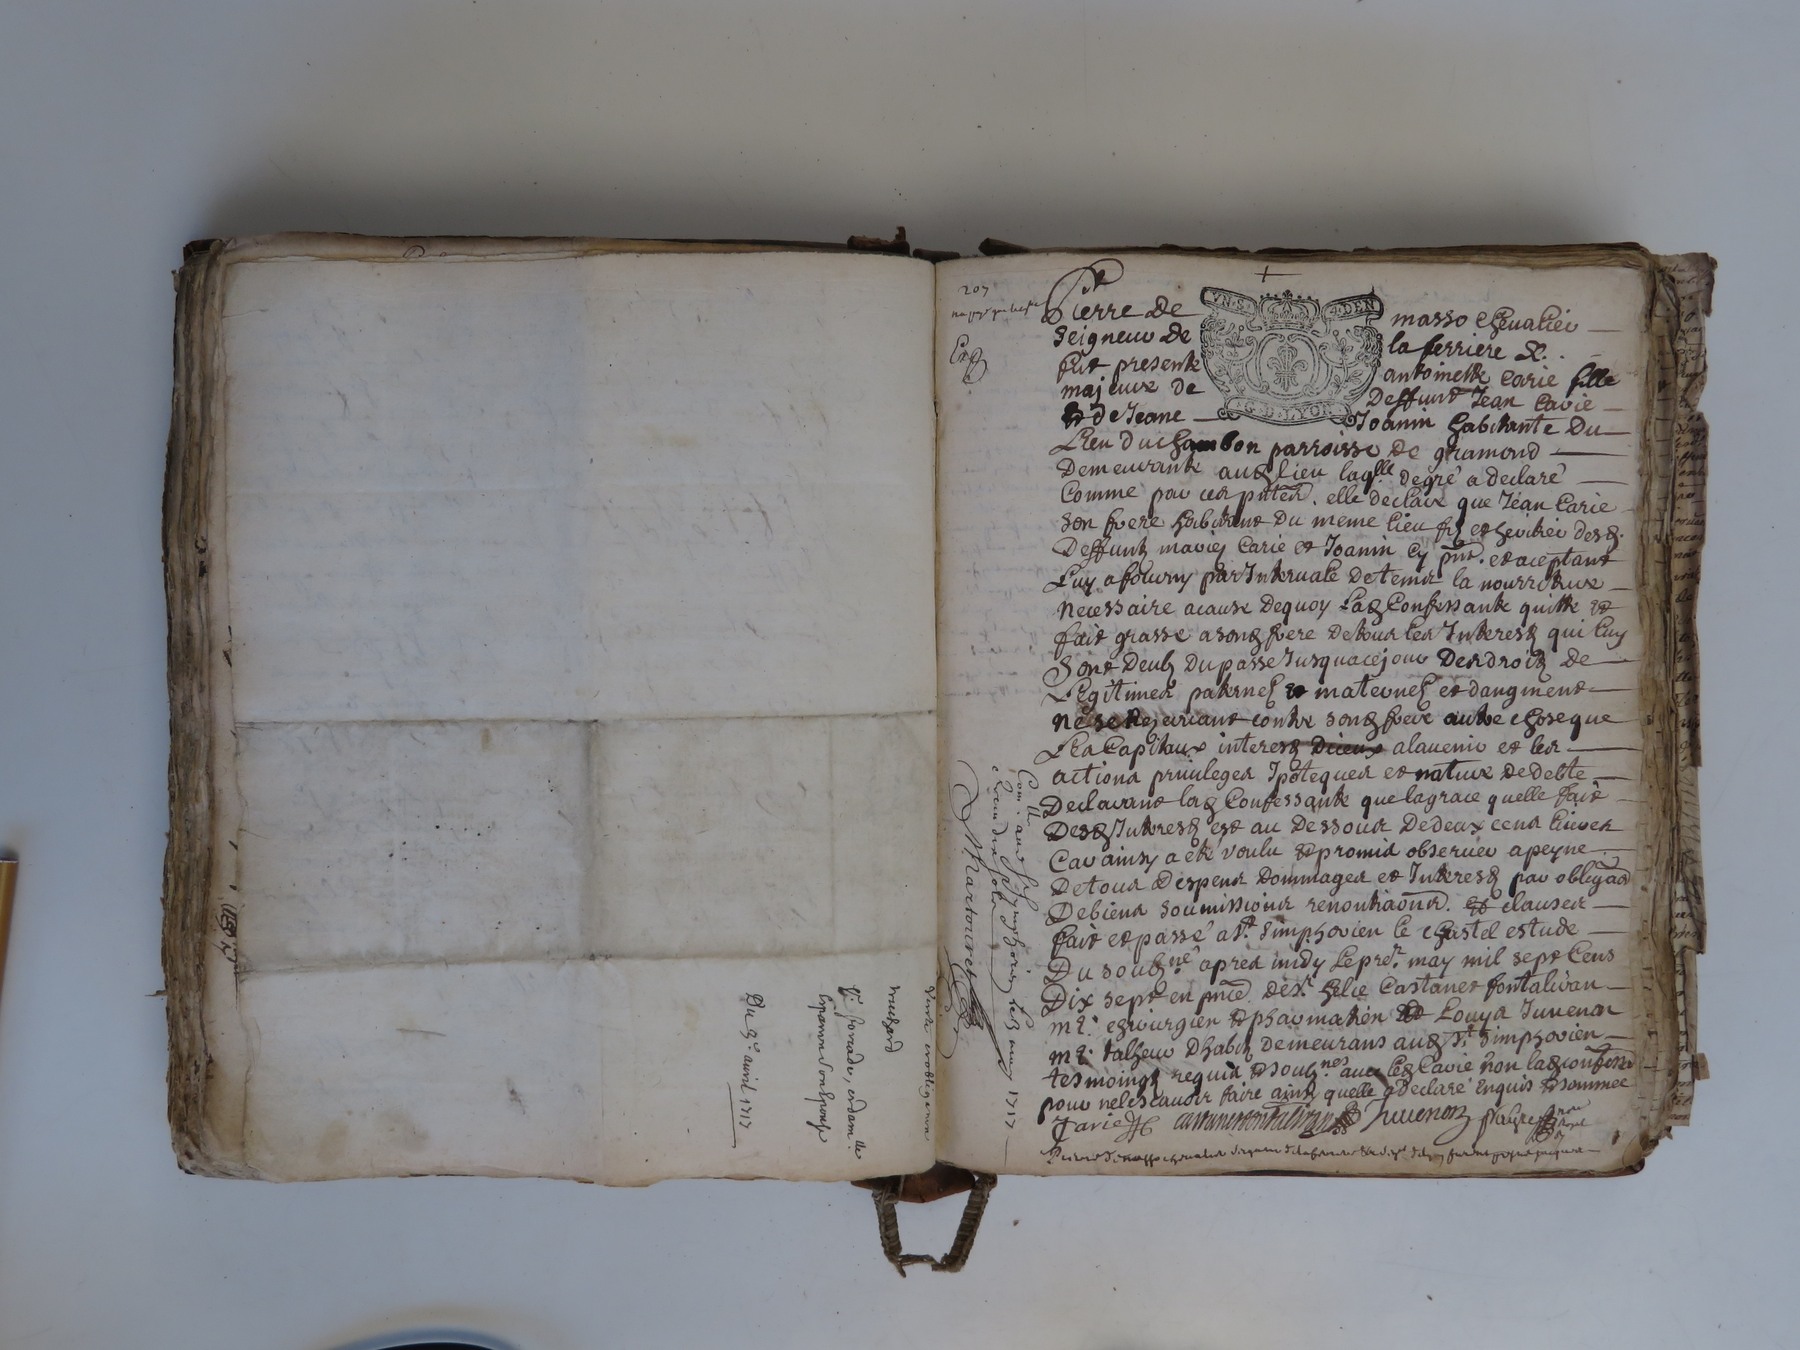 Vente et obligaõn
trucherd
Sr. forcade, et dam.lle
Du 3e. auril 1717
207
Exp
Pierre De masso cheualier
seigneur De la ferriere &.
fut presente antoinette Carie fille
majeure de Deffunt Jean Carie
et de Jeane Joanin habitante Du
Lieu du chambon parroisse de gramond
Demeurante audt lieu laqlle degré a declaré
Comme par ces pntes. elle declare que Jean Carie
son frere habitant Du meme lieu fis et heritier desdt.
Deffuntz mariez Carie et Joanin Cy pnt. et aceptant
Luy a fourny par Interuale de temps la nourriture
necessaire a cause Dequoy ladt Confessante quitte et
fait grasse a sondt frere de tous les Interestz qui luy
sont Deubz Du passé Jusqua ce jour Des droitz De
Legitimes paternelz et maternelz et daugment
ne se Reseruant contre sondt frere autre chose que
Les Capitaux interestz Diceux alauenir et les
actions priuileges Ipoteques et nature De debte
Declarant ladt Confessante que la grace quelle fait
Desdt Interestz est au Dessous De deux cens liures
Car ainsy a eté voulu et promis obseruer a peyne
De tous Despens Dommages et Interestz par obligãon
De biens soumissions renontiaõns. et clauses
fait et passé a St. Simphorien le Chastel estude
Du soubzné apres midy le per. may mil sept Cens
Dix sept en pnce. De sr. helie Castanet fontalivan
me. chirurgien et pharmatien et Louys Juuenon
me. talheur Dhabitz Demeurans audt St. Simphorien
tesmoingz requis et soubznes auec ledt Carie non ladt confessante
pour ne le scauoir faire ainsy quelle a Declaré Enquis et sommée
Carie Castanet fontalivan Juuenon
Martouret
Con.lle au St. Symphorien le 3 may 1717